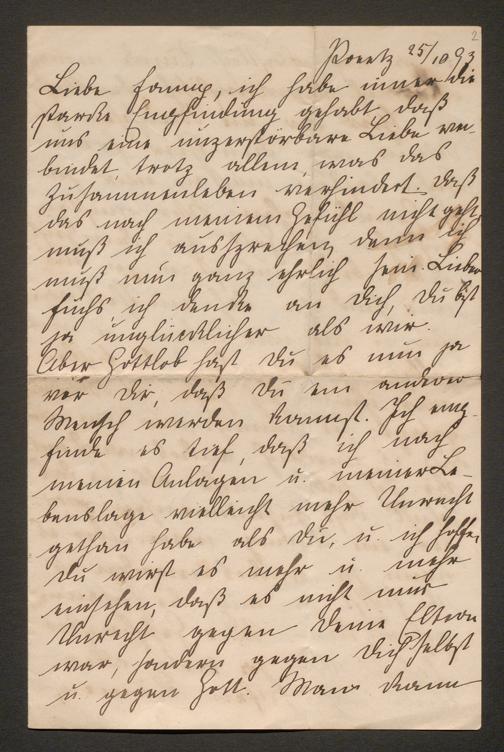 2
Preetz 25/10 93
Liebe Fanny, ich habe immer die
starke Empfindung gehabt daß
uns eine unzerstörbare Liebe ver-
bindet, trotz allem, was das
Zusammenleben verhindert. Daß
das nach meinem Gefühl nicht geht,
muß ich aussprechen, denn ich
muß nun ganz ehrlich sein. Lieber
Fuchs, ich denke an Dich, Du bist
ja unglücklicher als wir.
Aber Gottlob hast Du es nun ja
vor Dir, daß Du ein anderer
Mensch werden kannst. Ich emp-
finde es tief, daß ich nach
meinen Anlagen u. meiner Le-
benslage vielleicht mehr Unrecht
gethan habe als Du, u. ich hoffe,
Du wirst es mehr u. mehr
einsehen, daß es nicht nur
Unrecht gegen Deine Eltern
war, sondern gegen Dich selbst
u. gegen Gott. Man kann